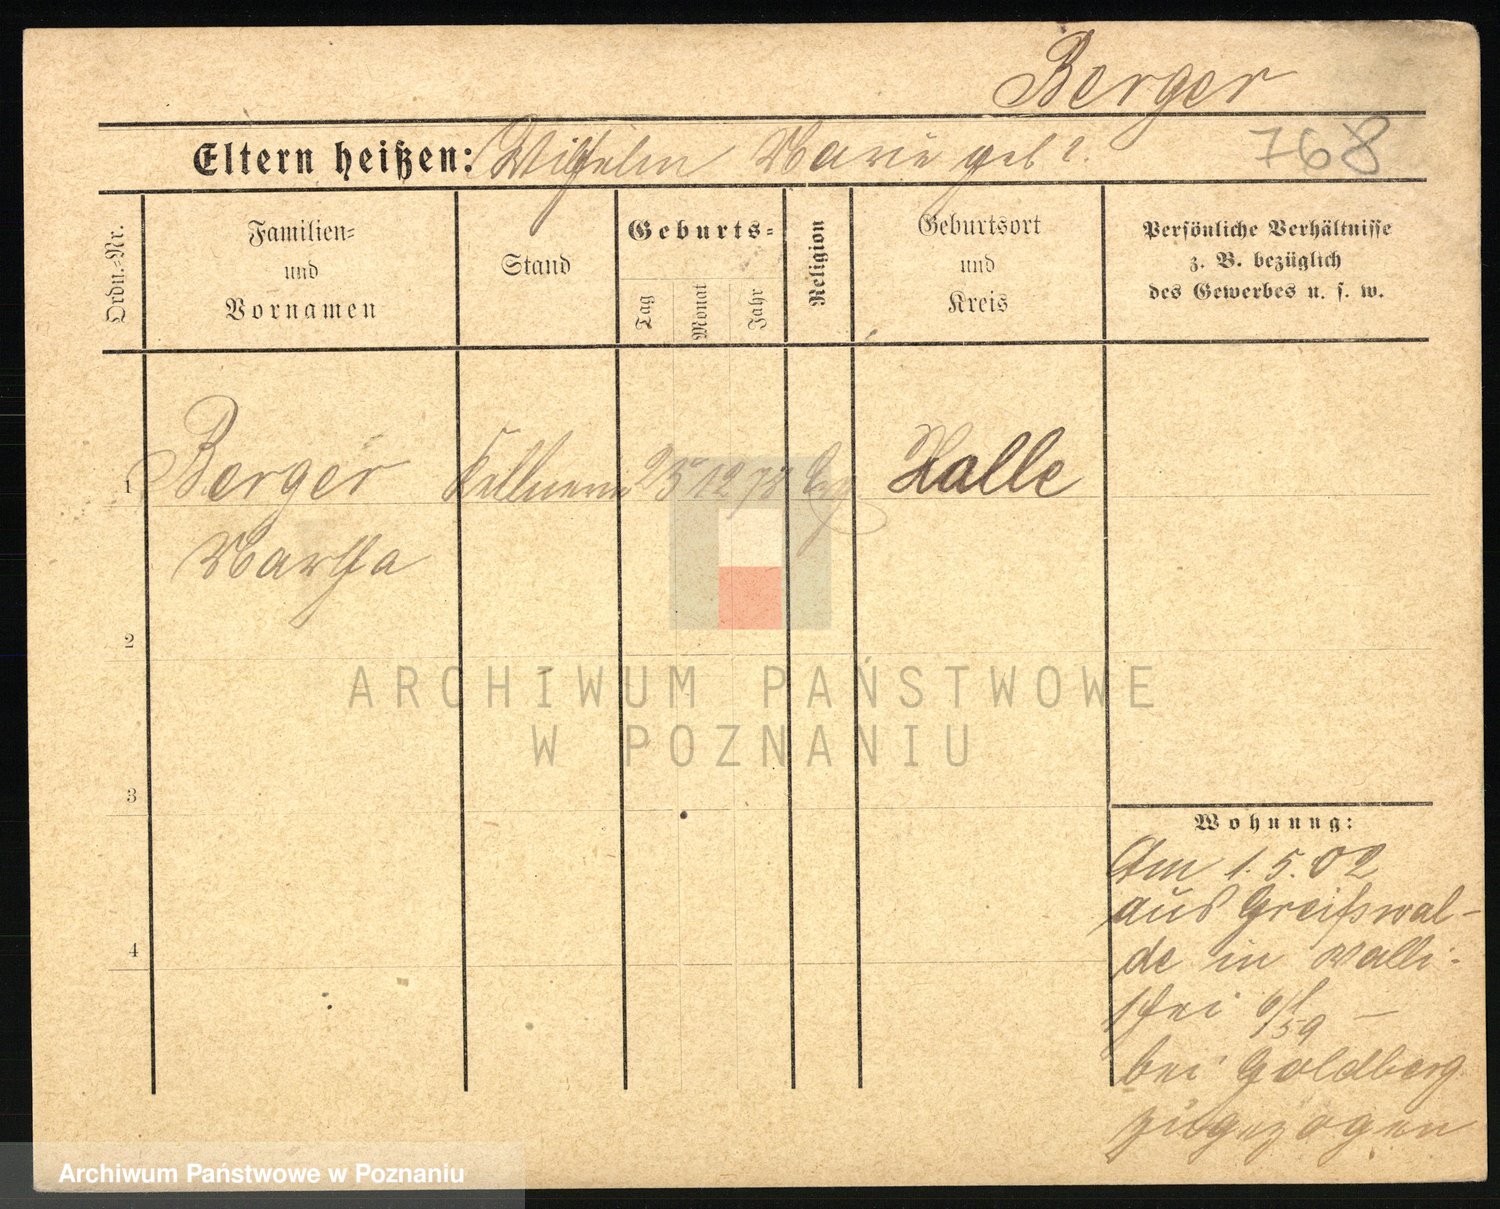 Berger
768
Eltern heißen: Wilhelm Marie geb ?.
Ordn.-Nr.
Familien-
und
Vornamen
Stand
Geburts-
Tag
Monat
Jahr
Religion
Geburtsort
und
Kreis
Persönliche Verhältnisse
z. B. bezüglich
des Gewerbes u. s. w.
1 Berger Kellnerin 25 12 78 Halle
Martha
2
3
4
Wohnung:
Am 1.5.02
aus Greifswal-
de in Walli-
schei
bei Goldberg
zugezogen
ARCHIWUM PAŃSTWOWE
W POZNANIU
Archiwum Państwowe w Poznaniu